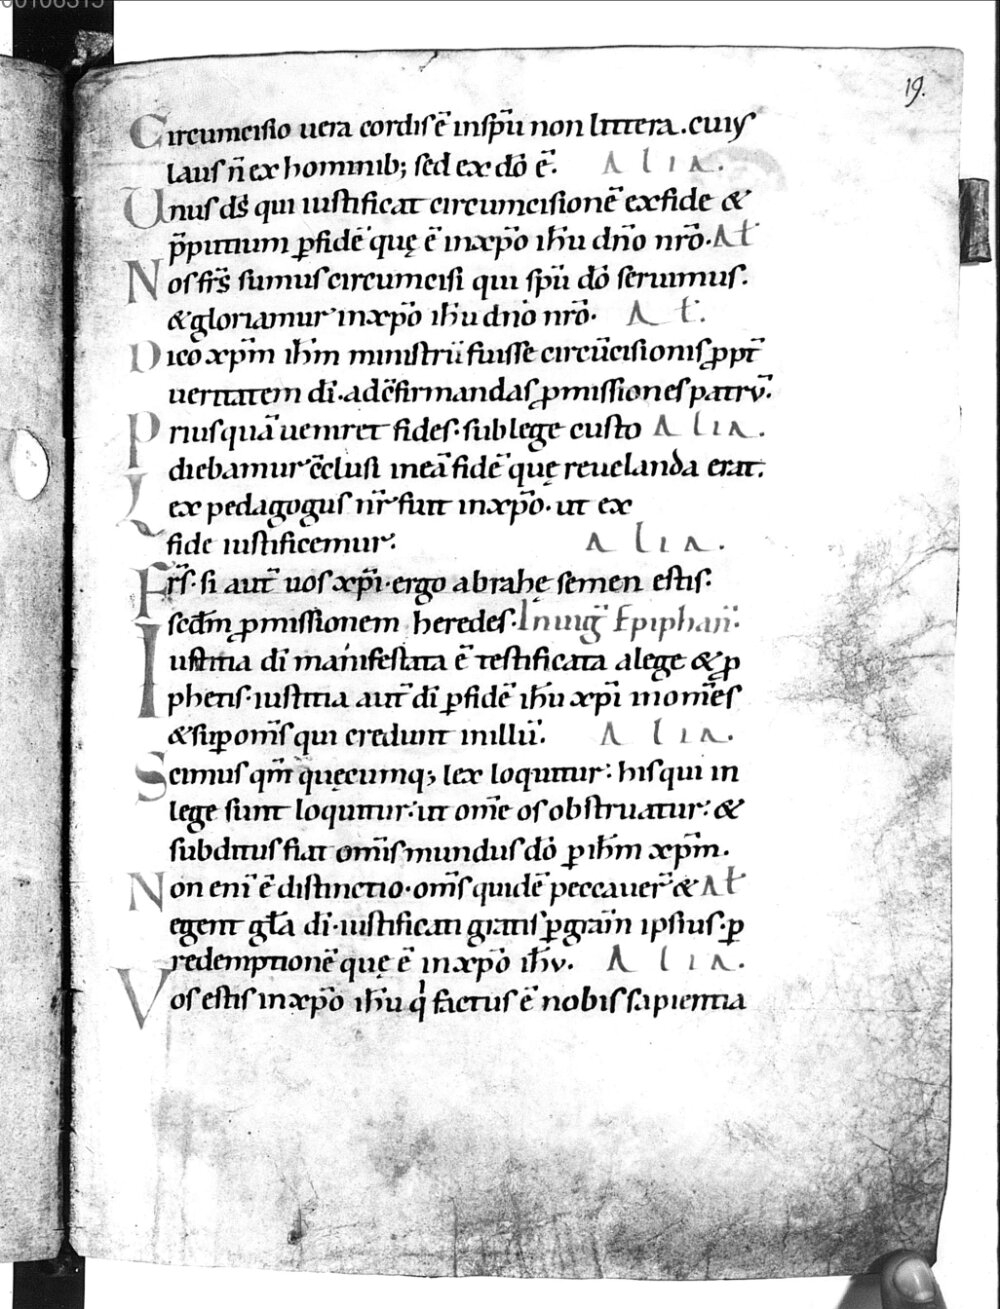 19.
Circumcisio uera cordis ē in sp̄u non littera. cuiꝰ
laus n̄ ex hominib; sed ex dō ē. ALIA.
Unus d̄s qui iustificat circumcisionē ex fide &
p̄putium ꝑ fidē quę ē in xp̄o ih̄u dn̄o nr̄o. Al̄
Nos fr̄s sumus circumcisi qui sp̄u dō seruimus.
& gloriamur in xp̄o ih̄u dn̄o nr̄o. Al̄.
Dico xp̄m ih̄m ministrū fuisse circūcisionis ꝓpt̄
ueritatem dī. ad c̄firmandas ꝓmissiones patrū.
Prius quā ueniret fides. sub lege custo ALIA.
diebamur c̄clusi in eā fidē quę reuelanda erat.
Lex pedagogus nr̄ fuit in xp̄o. ut ex
fide iustificemur. ALIA.
Fr̄s. si aut̄ uos xp̄i. ergo abrahę semen estis.
sec̄dm ꝓmissionem heredes. In uig̅ Epiphan̄.
Iustitia dī manifestata ē testificata a lege & ꝓ
phetis. iustitia aut̄ dī ꝑ fidē ih̄u xp̄i in om̄es
& sup̱ om̄s qui credunt in illū. ALIA.
Scimus qm̄ quęcumq; lex loquitur. his qui in
lege sunt loquitur. ut om̄e os obstruatur. &
subditus fiat om̄is mundus dō ꝑ ih̄m xp̄m.
Non eni ē distinctio. om̄s quidē peccauer̄ & Al̄
egent gl̄a dī. iustificati gratis ꝑ grām ipsius. ꝑ
redemptionē quę ē in xp̄o ih̄u. ALIA.
Vos estis in xp̄o ih̄u qͥ factus ē nobis sapientia